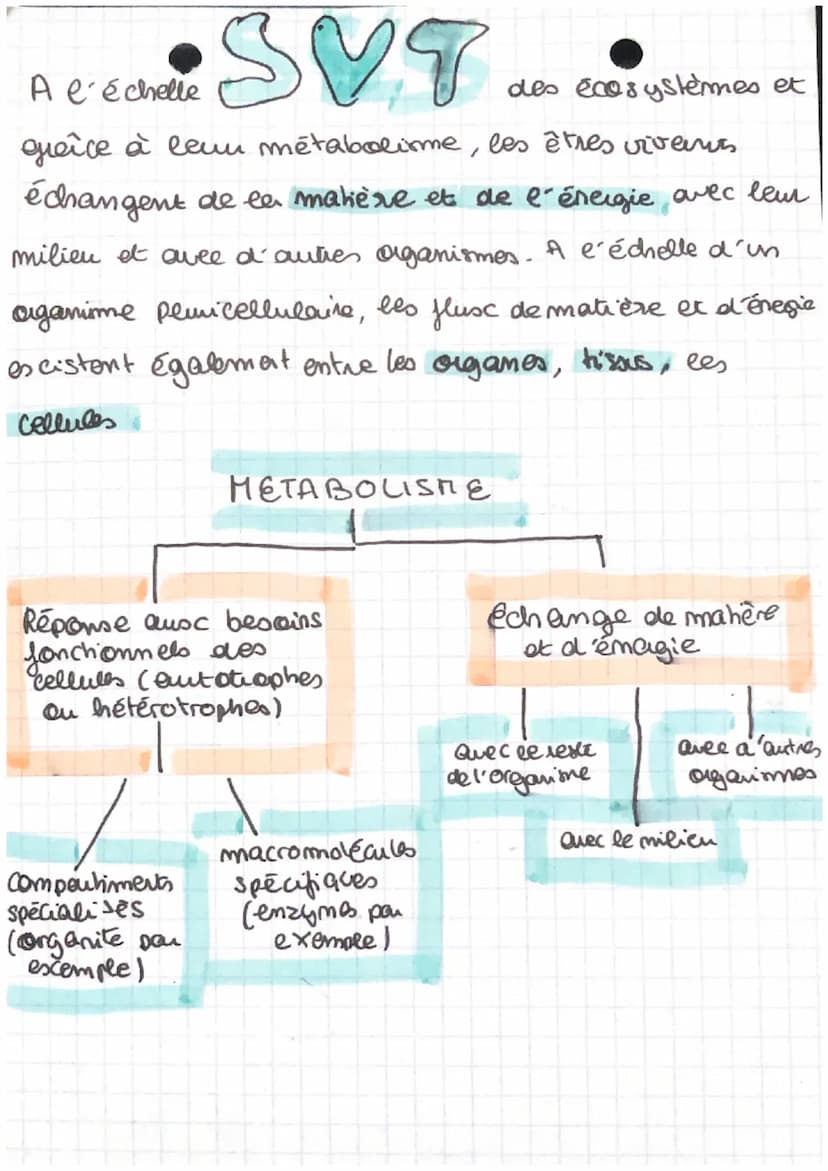 SVT
A l'échelle des écosystèmes et
grâce à leur métabolisme, les êtres vivants
échangent de la matière et de l'énergie avec leur
milieu et avec d'autres organismes. A l'échelle d'un
organisme pluricellulaire, les flux de matière et d'énegie
existent également entre les organes, tissus, les
cellules
METABOLISME
Réponse aux besoins
fonctionnels des
cellules (autotrophes
ou hétérotrophes)
échange de matière
et d'énergie
avec le reste
de l'organisme
avec d'autres
organismes
avec le milieu
compartiments
spécialisés
(organite par
exemple)
macromolécules
spécifiques
(enzymes par
exemple)